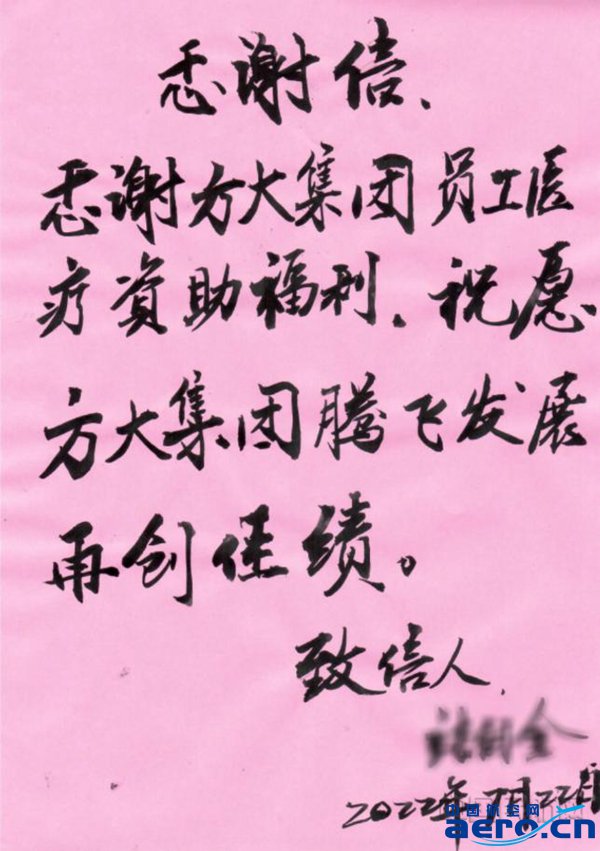 感谢信、
感谢方大集团员工医
疗资助福利、祝愿
方大集团腾飞发展
再创佳绩。
致信人、
2022年7月22日
中国航空网
aero.cn